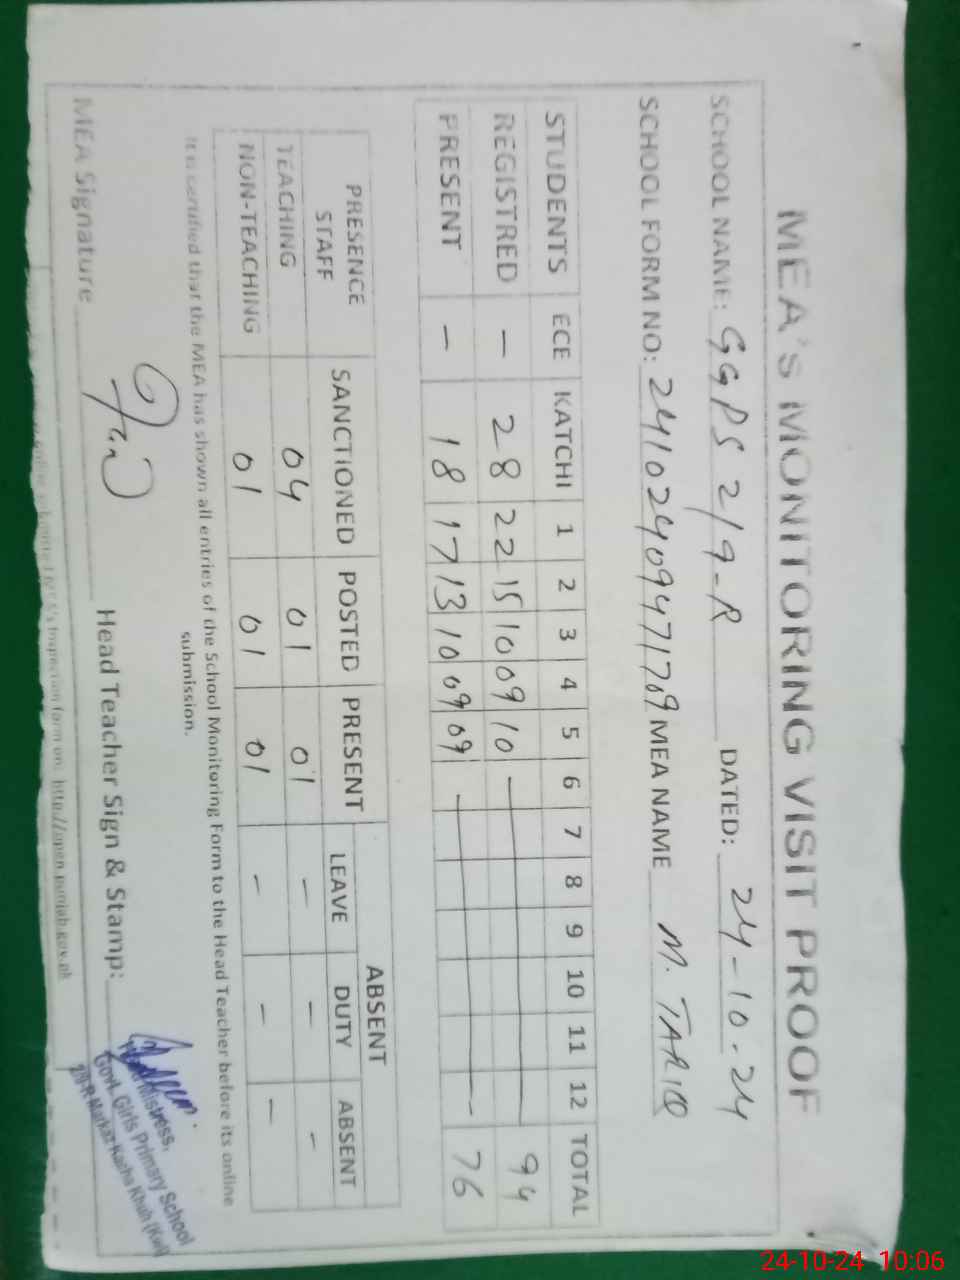 MEA's MONITORING VISIT PROOF
SCHOOL NAME: GGPS 2/9-R DATED: 24-10-24
SCHOOL FORM NO: 24102409471709 MEA NAME M. TARIQ
STUDENTS ECE KATCHI 1 2 3 4 5 6 7 8 9 10 11 12 TOTAL
REGISTRED - 28 22 15 10 09 10 94
PRESENT - 18 17 13 10 09 09 76
PRESENCE STAFF SANCTIONED POSTED PRESENT ABSENT
LEAVE DUTY ABSENT
TEACHING 04 01 01 - - -
NON-TEACHING 01 01 01 - - -
It is certified that the MEA has shown all entries of the School Monitoring Form to the Head Teacher before its online
submission.
MEA Signature Head Teacher Sign & Stamp:
mistress,
Govt. Girls Primary School
Markaz Kacha Khuh
inspection form on: http://open.punjab.gov.pk
24-10-24 10:06